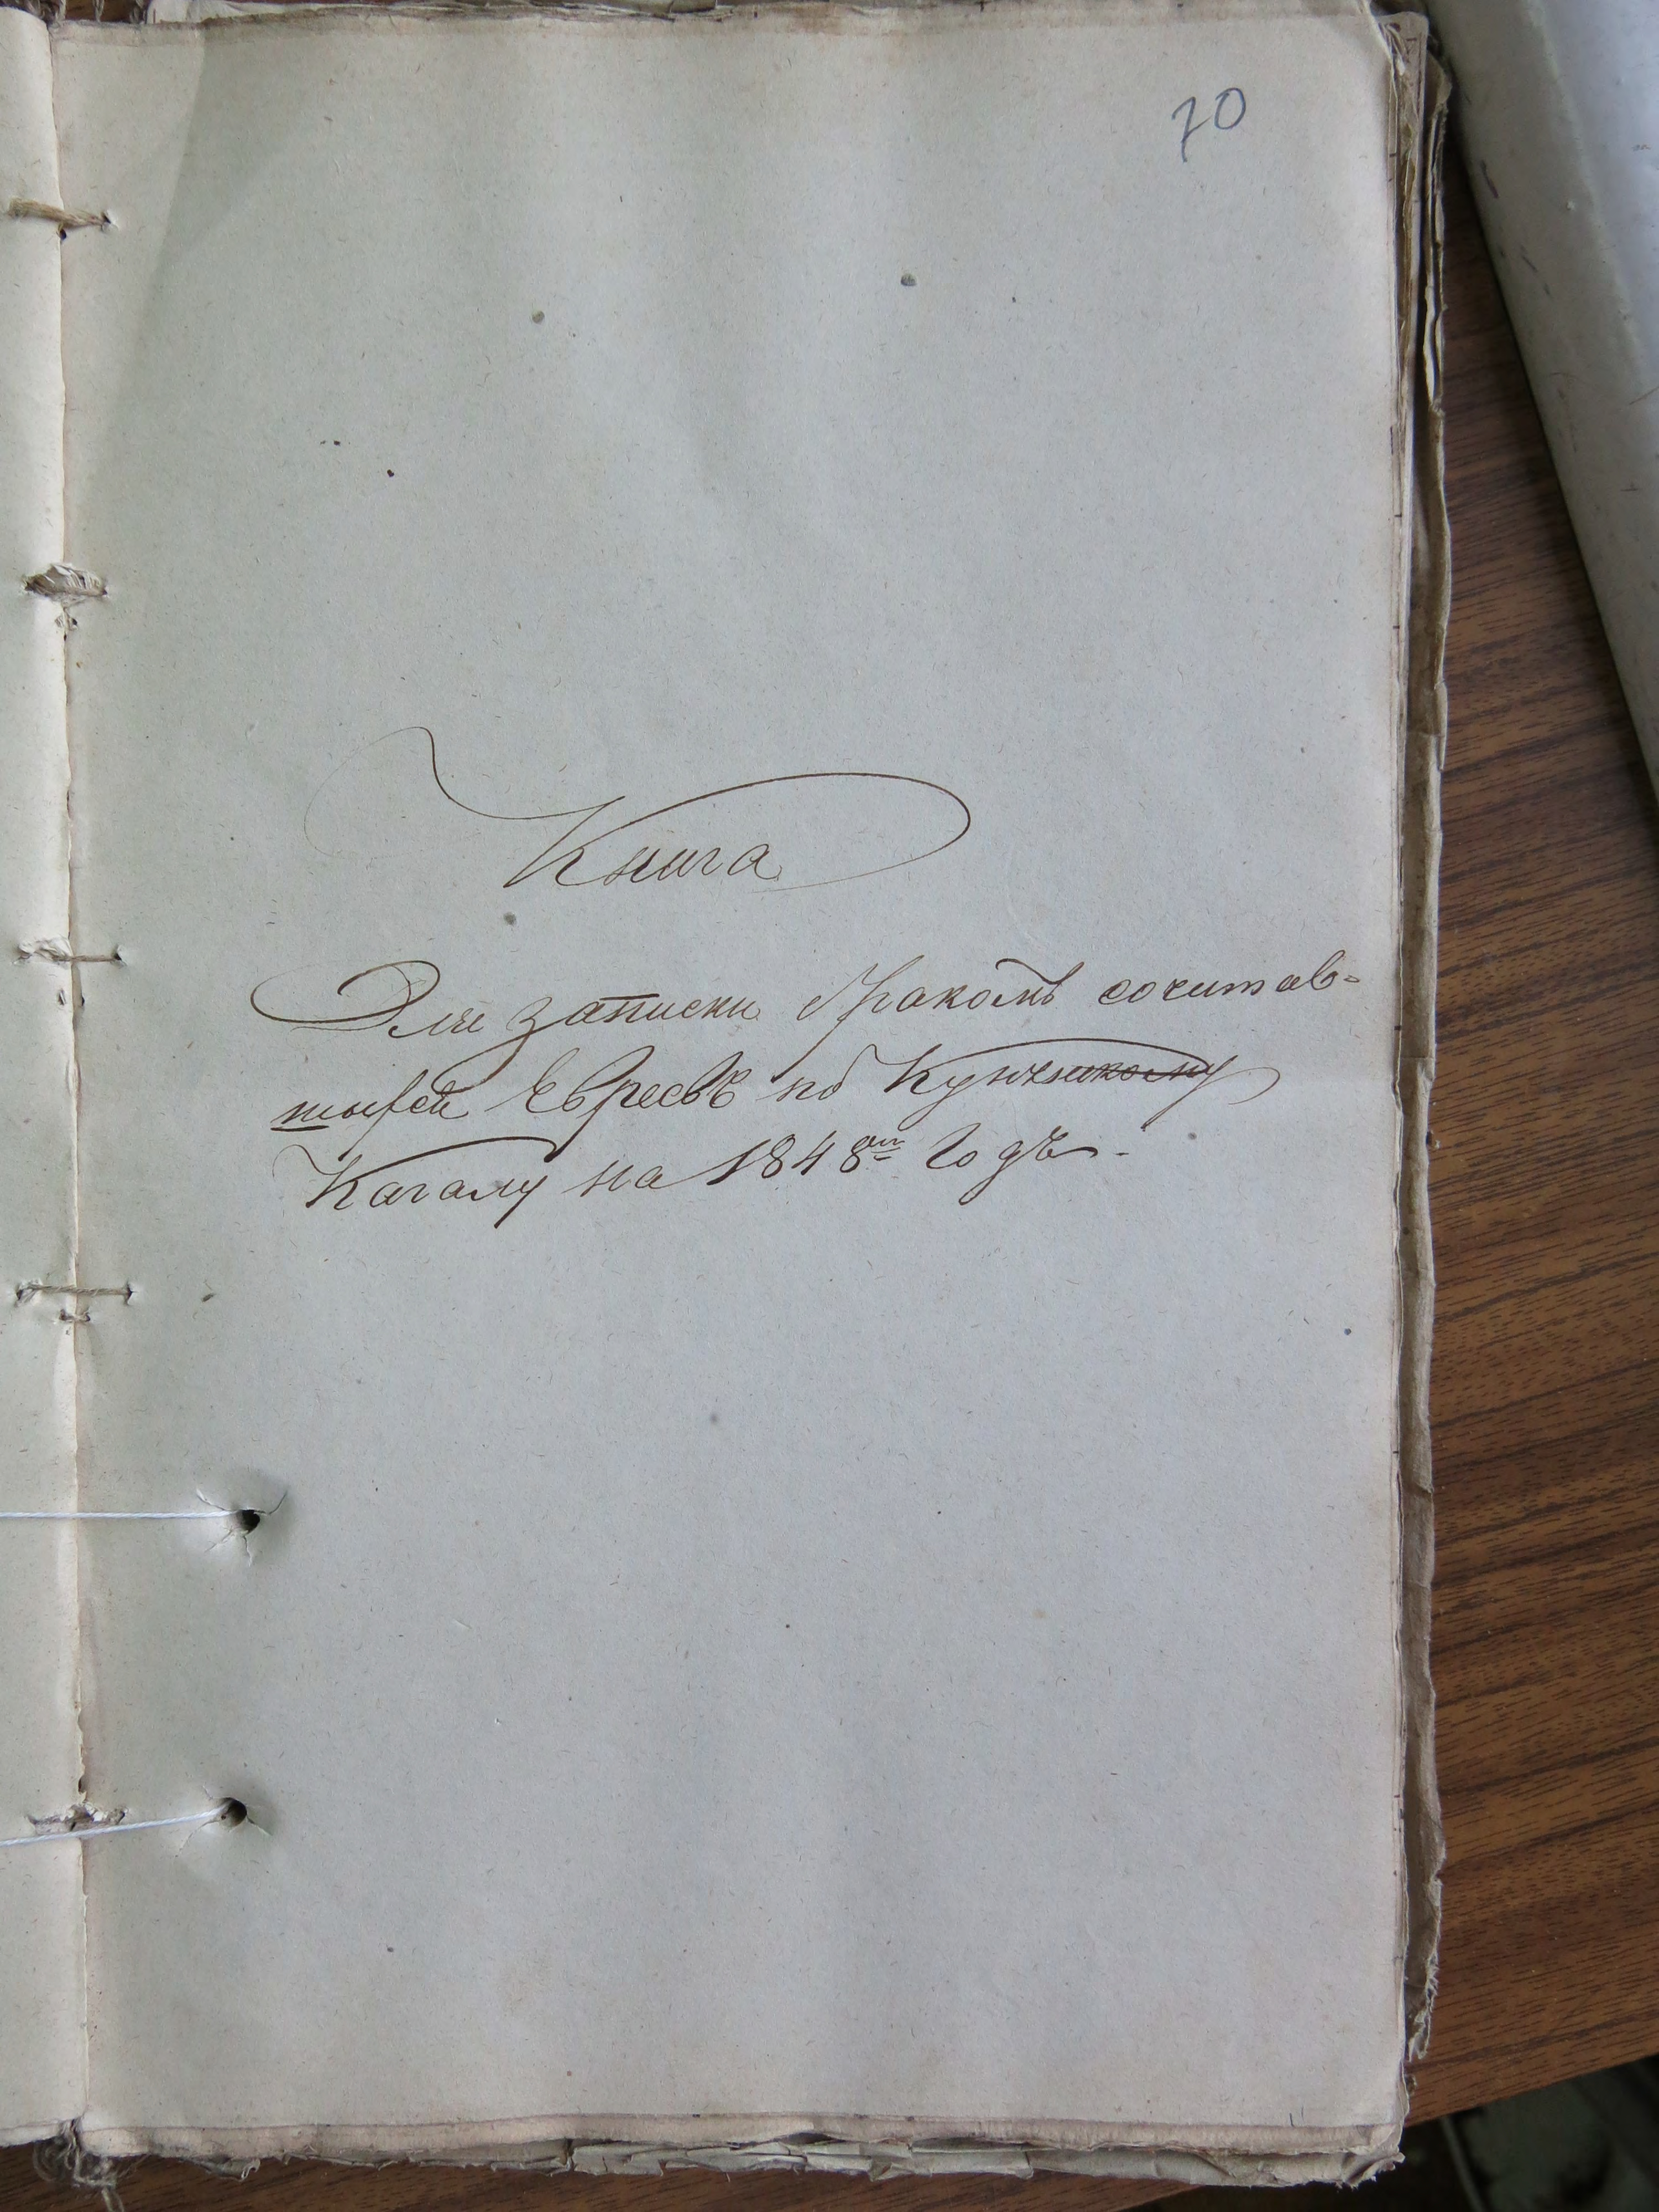 70
Книга
Для записки бракомъ сочитав-
шихся Евреевъ по
Кагалу на 1848ой Годъ.